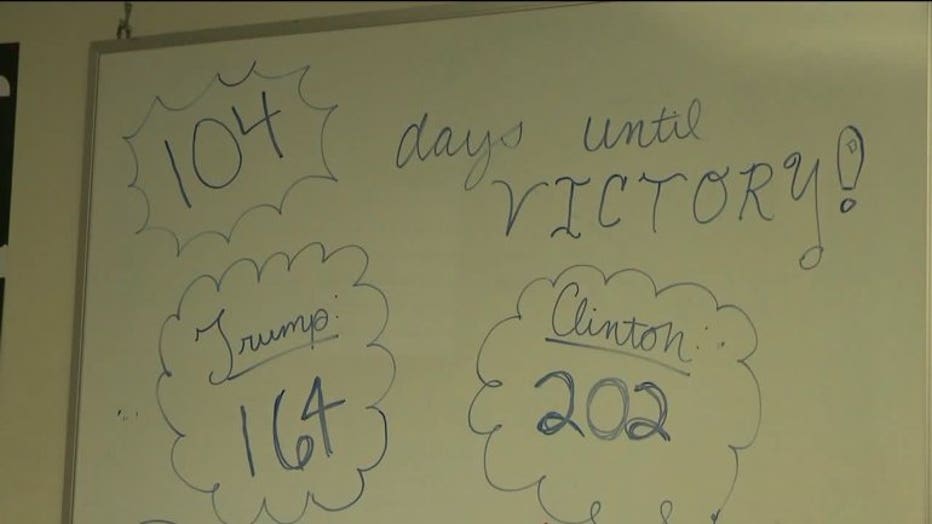 104 days until
VICTORY!
Trump:
164
Clinton:
202